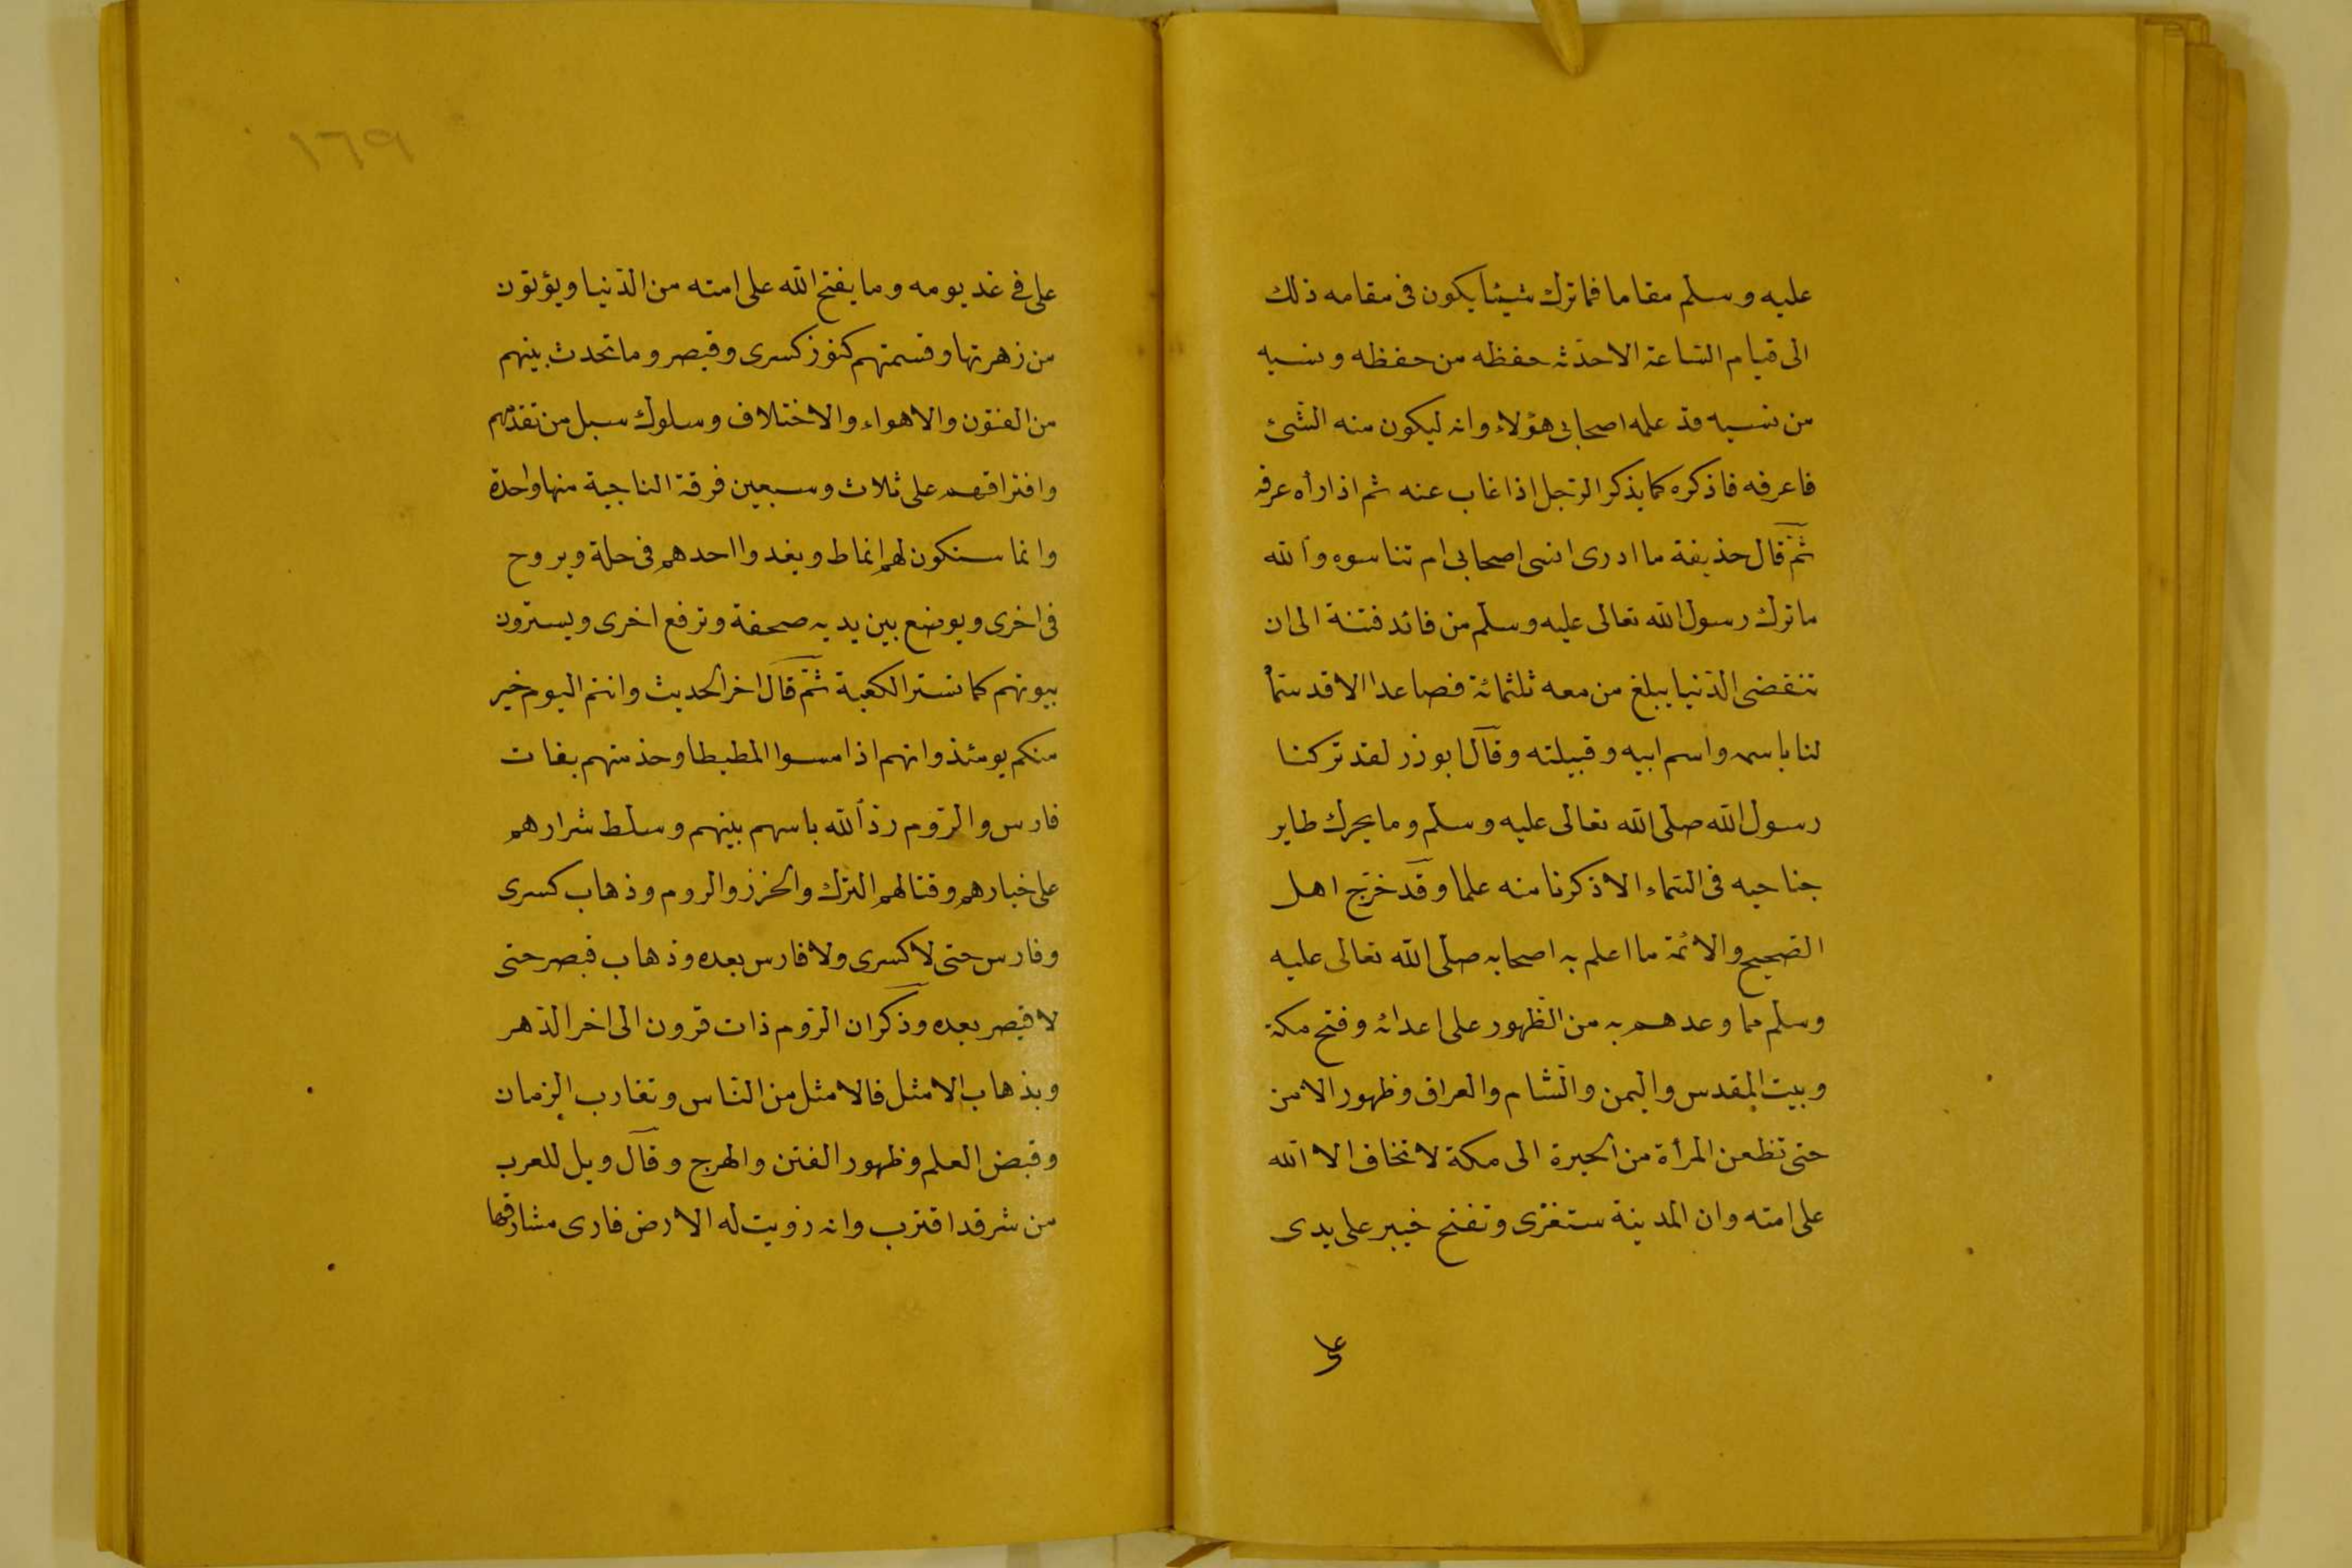 عليه وسلم مقاما فما ترك شيئا يكون فى مقامه ذلك
الى قيام الساعة الا حدثه حفظه من حفظه ونسيه
من نسيه قد علمه اصحابى هؤلاء وانه ليكون منه الشئ
فاعرفه فاذكره كما يذكر الرجل اذا غاب عنه ثم اذا رأه عرفه
ثم قال حذيفة ما ادرى انسى اصحابى ام تناسوه والله
ما ترك رسول الله تعالى عليه وسلم من قائد فتنة الى ان
تنقضى الدنيا يبلغ من معه ثلثمائة فصاعدا الا قد سماُ
لنا باسمه واسم ابيه وقبيلته وقال ابو ذر لقد تركنا
رسول الله صلى الله تعالى عليه وسلم وما يحرك طاير
جناحيه فى السماء الا ذكرنا منه علما وقد خرج اهل
الصحيح والائمة ما اعلم به اصحابه صلى الله تعالى عليه
وسلم مما وعدهم به من الظهور على اعدائه وفتح مكة
وبيت المقدس واليمن والشام والعراق وظهور الامن
حتى تظعن المرأة من الحيرة الى مكة لا تخاف الا الله
على امته وان المدينة ستغزى وتفتح خيبر على يدى
على
١٦٩
على فى غد يومه وما يفتح الله على امته من الدنيا ويؤتون
من زهرتها وقسمتهم كنوز كسرى وقيصر وما تحدث بينهم
من الفتون والاهواء والاختلاف وسلوك سبل من تقدمهم
وافتراقهم على ثلاث وسبعين فرقة الناجية منها واحدة
وانما ستكون لهم انماط ويغدوا احدهم فى حلة ويروح
فى اخرى ويوضع بين يديه صحفة وترفع اخرى ويسترون
بيوتهم كما تستر الكعبة ثم قال اخر الحديث وانتم اليوم خير
منكم يومئذ وانهم اذا مسوا المطيطا وخدمتهم بنات
فارس والروم رد الله باسهم بينهم وسلط شرارهم
على خيارهم وقتالهم الترك والخزر والروم وذهاب كسرى
وفارس حتى لا كسرى ولا فارس بعده وذهاب قيصر حتى
لا قيصر بعده وذكر ان الروم ذات قرون الى اخر الدهر
وبذهاب الامثل فالامثل من الناس وتقارب الزمان
وقبض العلم وظهور الفتن والهرج وقال ويل للعرب
من شر قد اقترب وانه زويت له الارض فارى مشارقها